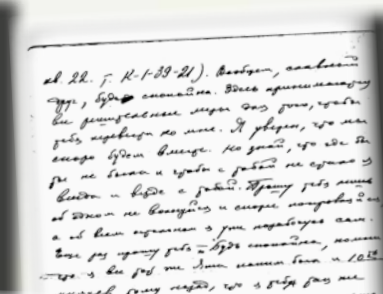 кв. 22. т. К-1-39-21). Вообщем, славный
друг, будь спокойна. Здесь принимаются
решительные меры для того, чтобы
тебя перевести ко мне. Я уверен, что мы
скоро будем вместе. Но знай, что где бы
ты не была и чтобы с тобой не стало я
всегда и везде с тобой. Прошу тебя лишь
об одном не волнуйся и скорее
а об всем остальном я уже сам.
Еще раз прошу тебя будь спокойна, помни
что я
тому назад, что я тебя